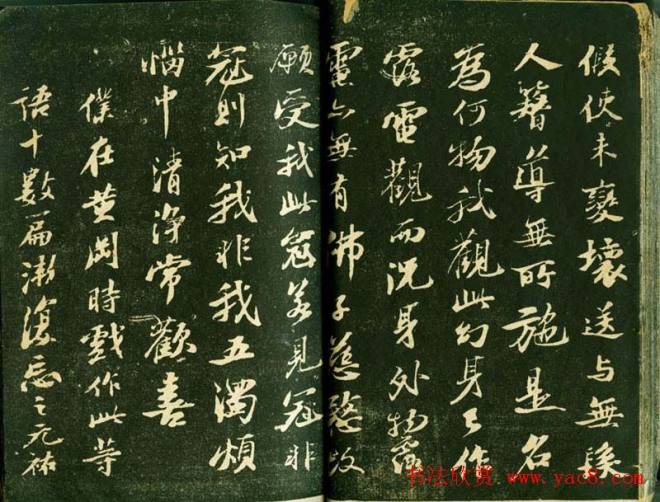 假使未變壞送与無髮
人簪導無所施是名
為何物我觀此幻身已作
露電觀而況身外物露
電亦無有佛子慈愍故
願受我此冠若見冠非
冠則知我非我五濁煩
惱中清淨常歡喜
僕在黄岡時戲作此等
語十數篇漸復忘之元祐
书法欣赏 www.yac8.com